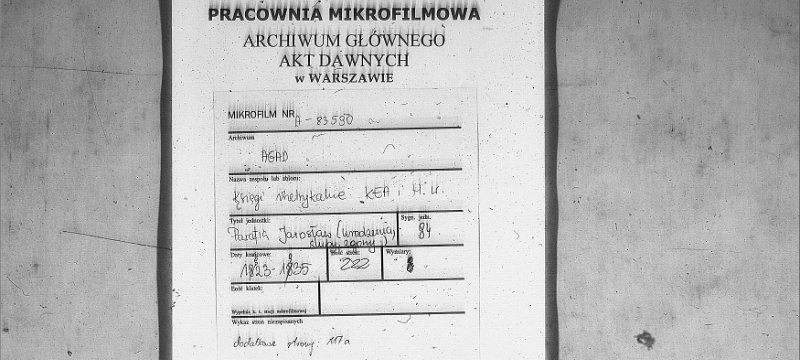 PRACOWNIA MIKROFILMOWA
ARCHIWUM GŁÓWNEGO
AKT DAWNYCH
w WARSZAWIE
MIKROFILM NR A-83590
Archiwum
AGAD
Nazwa zespołu lub zbioru:
Księgi metrykalne KEA i M. U.
Tytuł jednostki:
Sygn. jedn.
Parafia Jarosław (urodzenia,
śluby, zgony)
84
Daty krańcowe:
Ilość stron:
Wymiary:
1823-1835
222
Ilość klatek:
Wypełnia k. t. stacji mikrofilmowej
Wykaz stron niezapisanych
dodatkowe strony: 117a